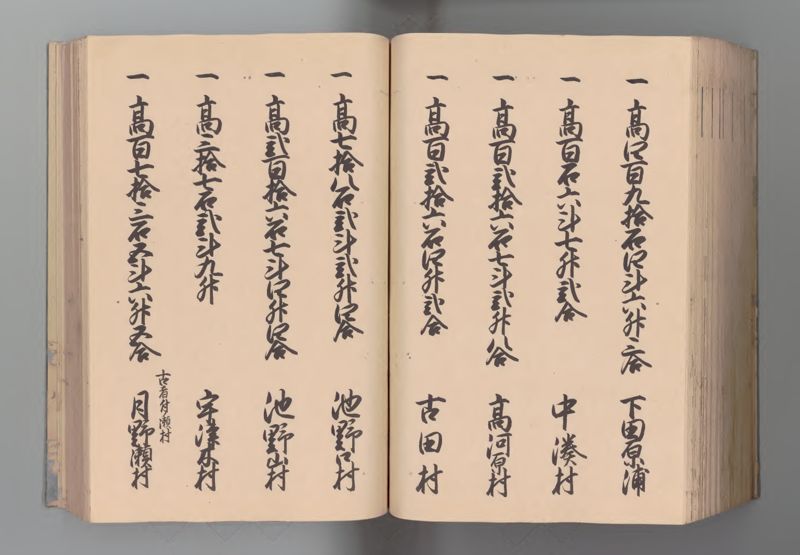 一 高四百九拾石四斗六升三合 下田原浦
一 高百石六斗七升弐合 中湊村
一 高百弐拾六石七斗弐升八合 高河原村
一 高百弐拾六石四升弐合 古田村
一 高七拾八石弐斗弐升四合 池野口村
一 高弐百拾六石七斗四升四合 池野山村
一 高三拾七石弐斗九升 宇津木村
一 高百七拾三石五斗六升五合 月野瀬村
古者月瀬村